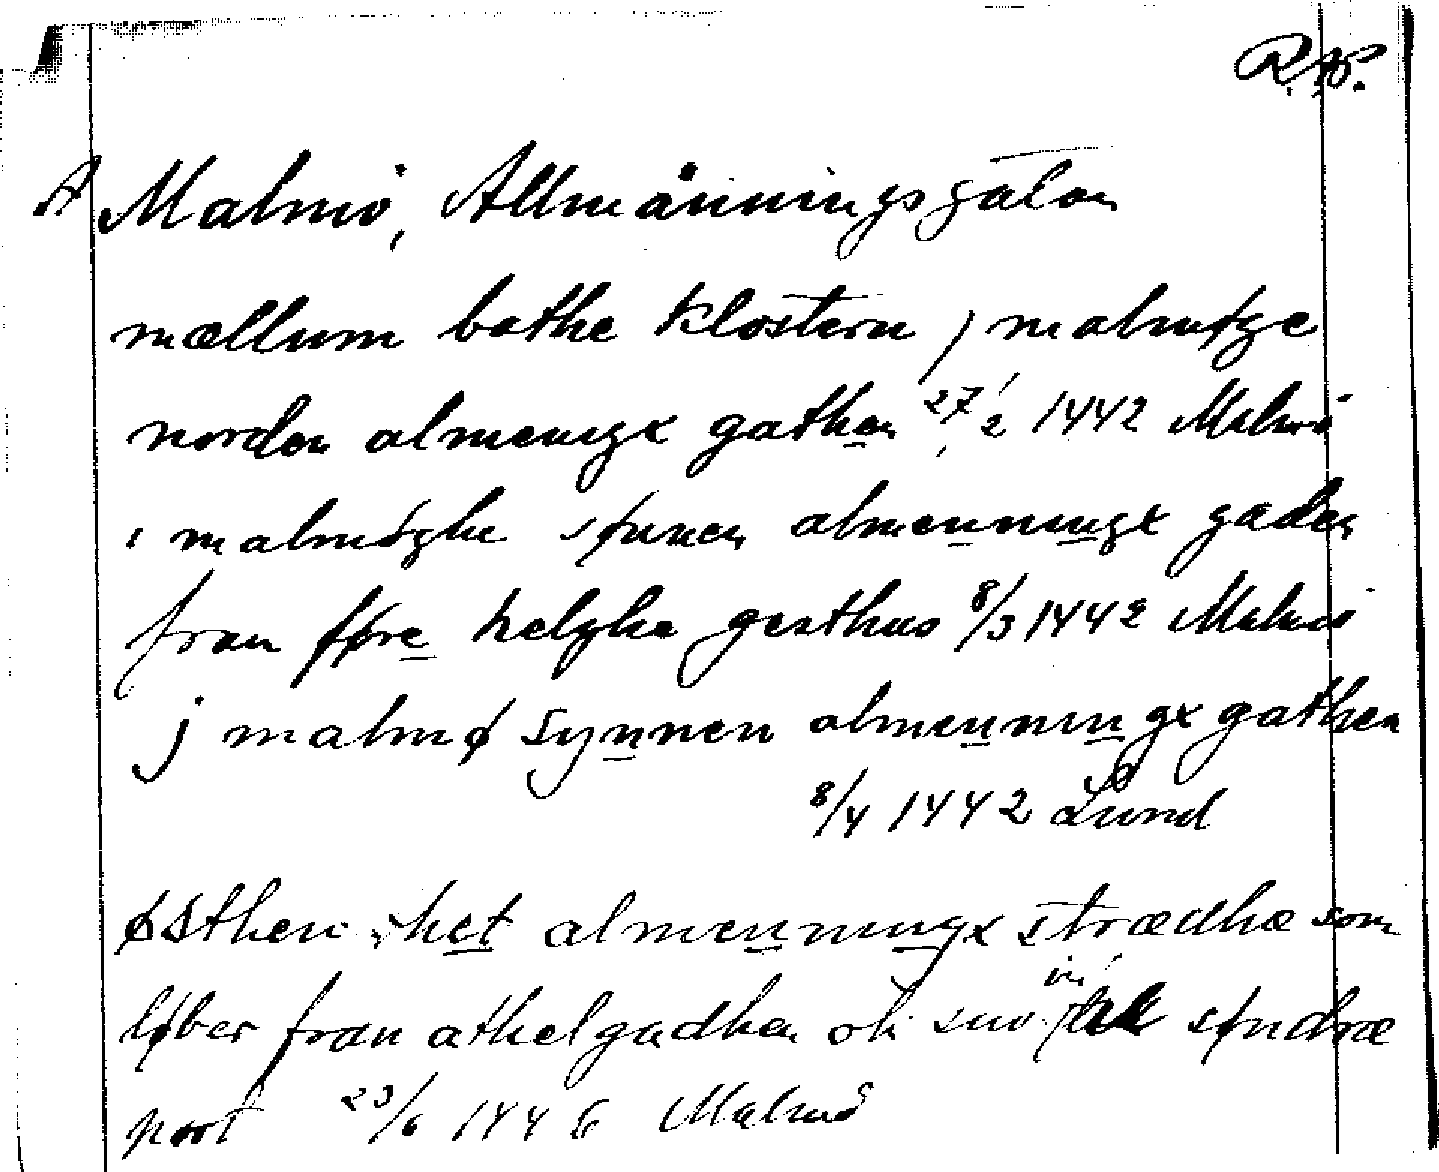 R.A.
A Malmö, Allmänningsgatan
mællum bothe klostern j malmøge
norden almenigx gathen 27/2 1442 Malmö
i malmøghe synnen almenningx gaden
fran føre helghe gesthus 8/3 1442 Malmö
j malmø synnen almenningx gathen
8/4 1442 Lund
østhen het almenningx strædhæ som
løber fran athelgadhen ok suo in til søndræ
port 23/6 1446 Malmö